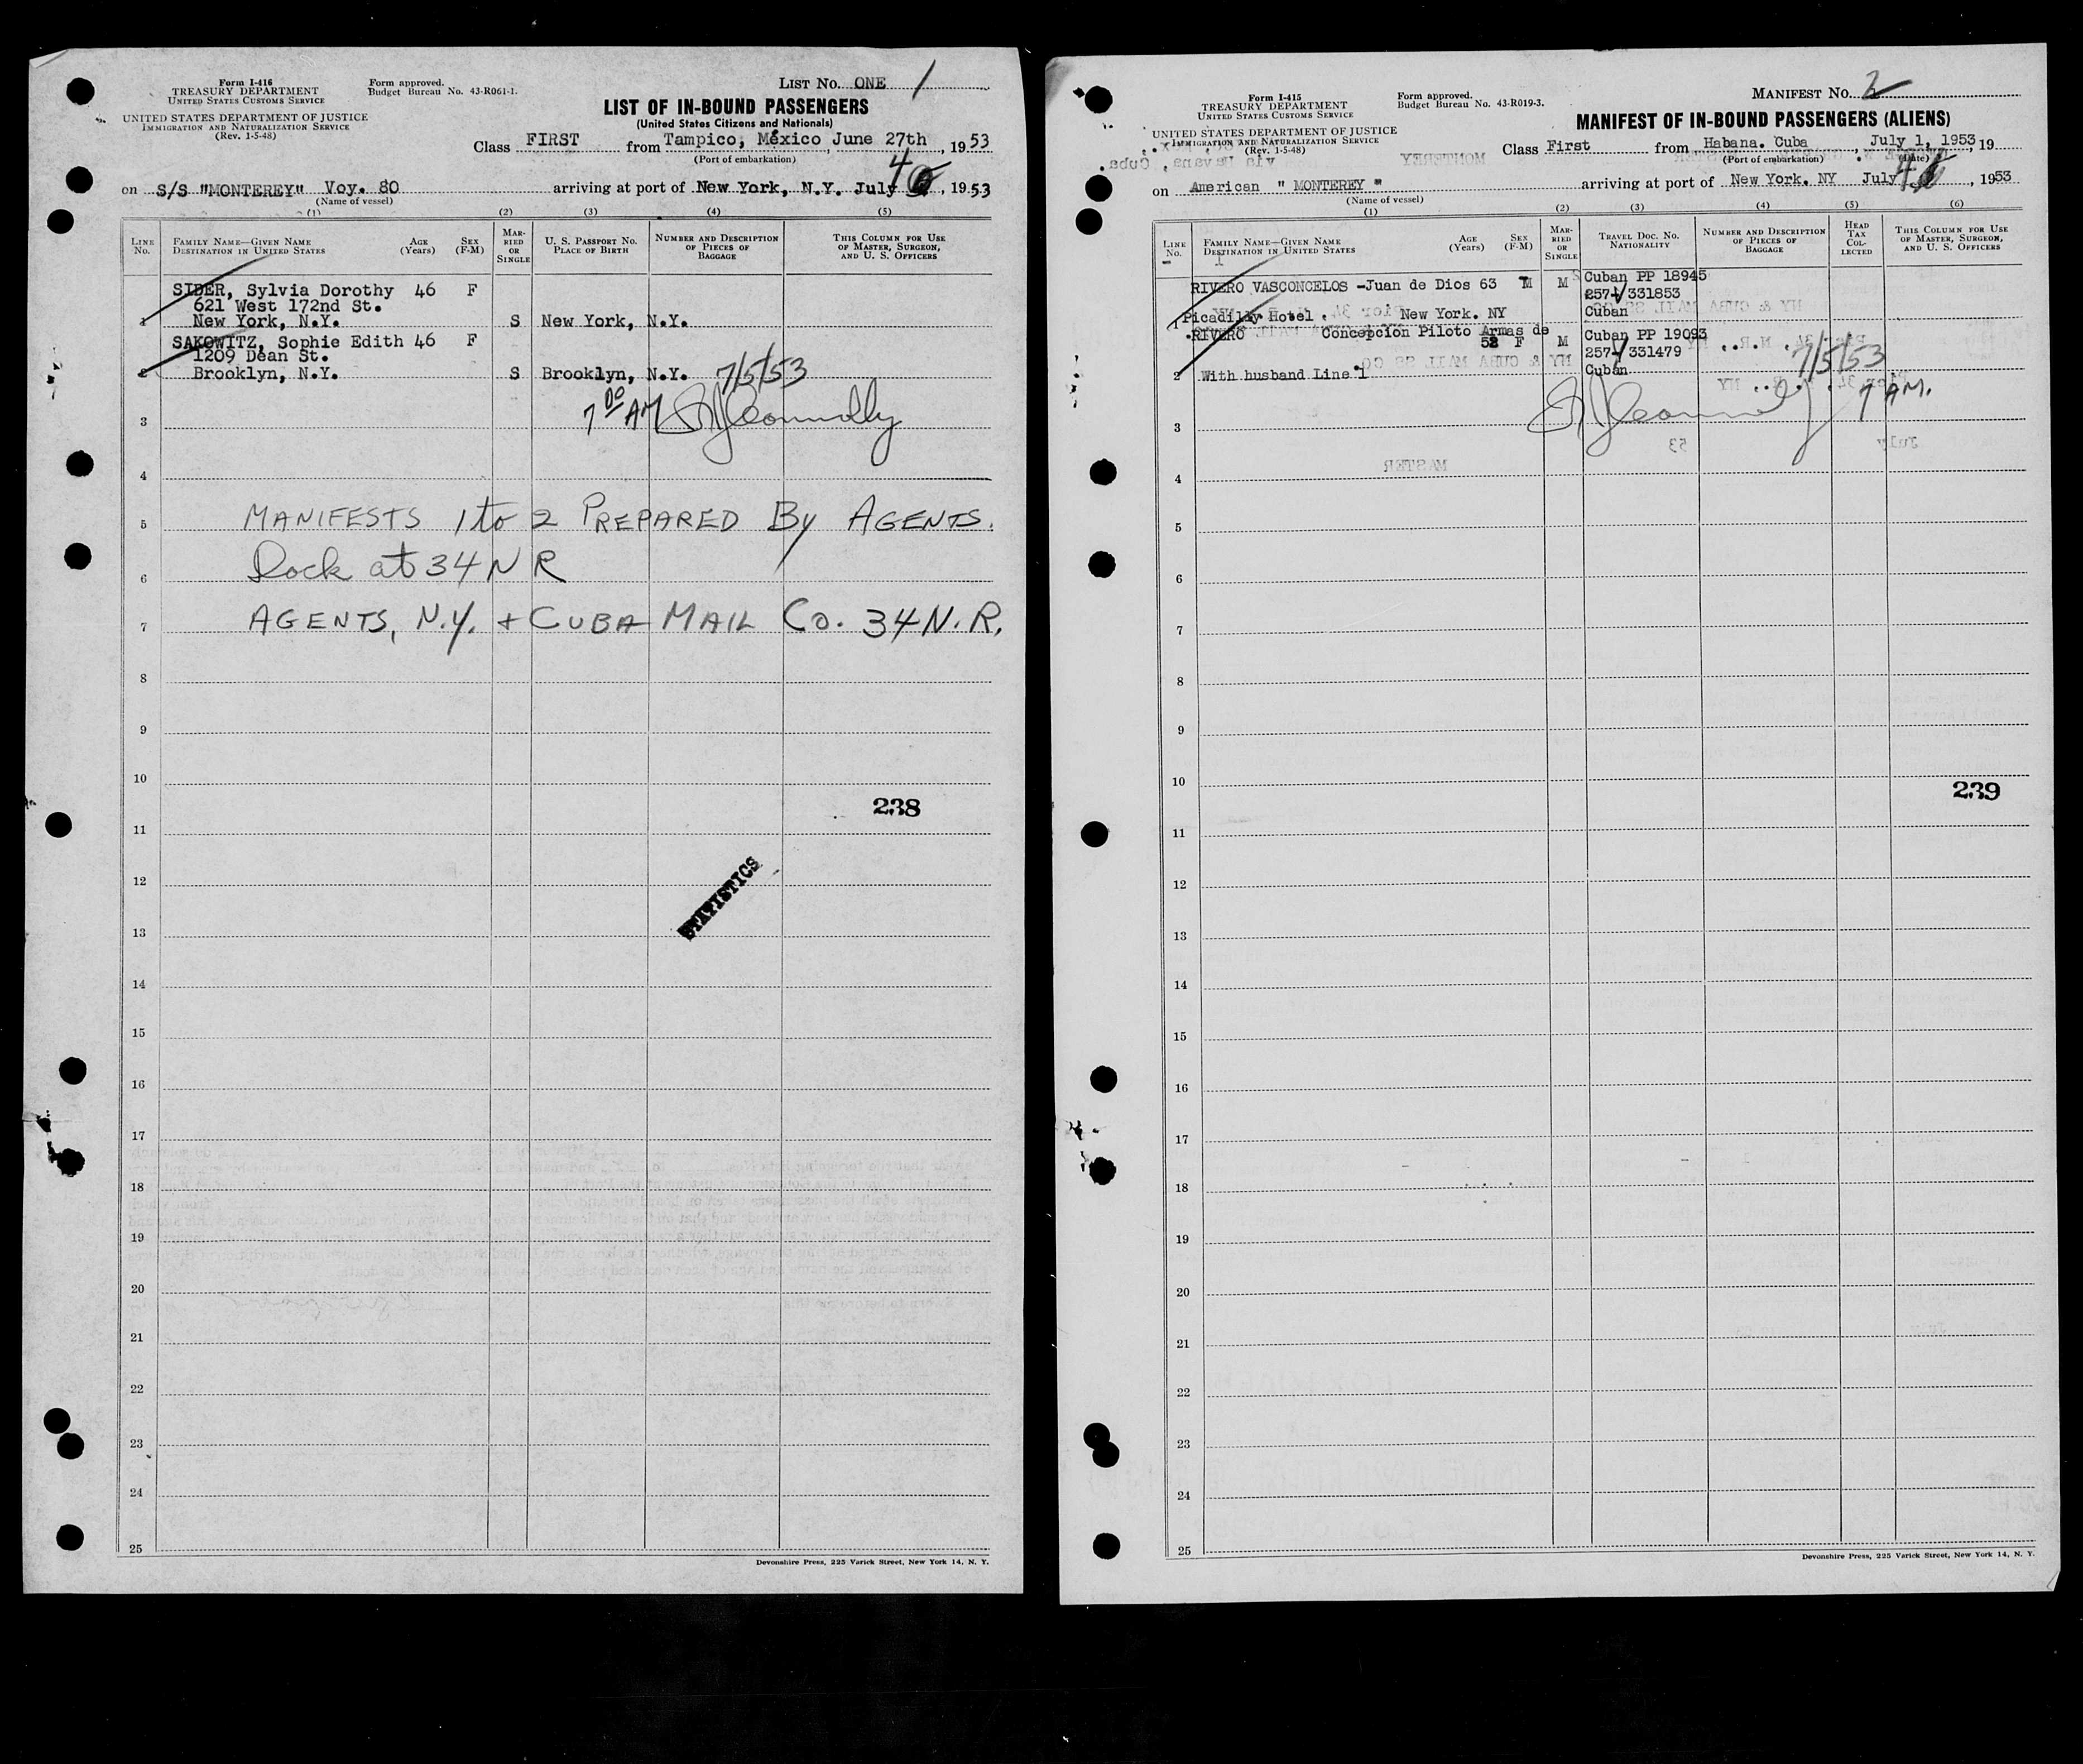 Form I-416
TREASURY DEPARTMENT
UNITED STATES CUSTOMS SERVICE
UNITED STATES DEPARTMENT OF JUSTICE
IMMIGRATION AND NATURALIZATION SERVICE
(Rev. 1-5-48)
Form approved.
Budget Bureau No. 43-R061-1.
LIST NO. ONE 1
LIST OF IN-BOUND PASSENGERS
(United States Citizens and Nationals)
Class FIRST from Tampico, México June 27th, 1953
(Port of embarkation)
on S/S "MONTEREY" Voy. 80 arriving at port of New York, N.Y. July 4, 1953
(Name of vessel)
(1) (2) (3) (4) (5)
LINE NO.
FAMILY NAME—GIVEN NAME
DESTINATION IN UNITED STATES
AGE (Years)
SEX (F-M)
MARRIED OR SINGLE
U. S. PASSPORT NO.
PLACE OF BIRTH
NUMBER AND DESCRIPTION OF PIECES OF BAGGAGE
THIS COLUMN FOR USE OF MASTER, SURGEON, AND U. S. OFFICERS
SIDER, Sylvia Dorothy 46 F
621 West 172nd St.
1 New York, N.Y. S New York, N.Y.
SAKOWITZ, Sophie Edith 46 F
1209 Dean St.
2 Brooklyn, N.Y. S Brooklyn, N.Y. 7/5/53
7 00 AM Connolly
3
4
5 MANIFESTS 1 to 2 PREPARED By AGENTS.
6 Dock at 34 N R
7 AGENTS, N.Y. + CUBA MAIL Co. 34 N.R.
8
9
10
238
11
12
STATISTICS
13
14
15
16
17
18
19
20
21
22
23
24
25
Devonshire Press, 225 Varick Street, New York 14, N. Y.
Form I-415
TREASURY DEPARTMENT
UNITED STATES CUSTOMS SERVICE
UNITED STATES DEPARTMENT OF JUSTICE
IMMIGRATION AND NATURALIZATION SERVICE
(Rev. 1-5-48)
Form approved.
Budget Bureau No. 43-R019-3.
MANIFEST NO. 2
MANIFEST OF IN-BOUND PASSENGERS (ALIENS)
Class First from Habana. Cuba, July 1, 1953, 19
(Port of embarkation) (Date)
on American " MONTEREY " arriving at port of New York. NY July 4, 1953
(Name of vessel)
(1) (2) (3) (4) (5) (6)
LINE NO.
FAMILY NAME—GIVEN NAME
DESTINATION IN UNITED STATES
AGE (Years)
SEX (F-M)
MARRIED OR SINGLE
TRAVEL DOC. NO.
NATIONALITY
NUMBER AND DESCRIPTION OF PIECES OF BAGGAGE
HEAD TAX COLLECTED
THIS COLUMN FOR USE OF MASTER, SURGEON, AND U. S. OFFICERS
RIVERO VASCONCELOS -Juan de Dios 63 M M Cuban PP 18945
257-V 331853
1 Picadilly Hotel. New York. NY Cuban
RIVERO Concepción Piloto Armas de
52 F M Cuban PP 19093
257-V 331479 7/5/53
2 With husband Line 1 Cuban
Connolly 7 AM.
3
4
5
6
7
8
9
10
239
11
12
13
14
15
16
17
18
19
20
21
22
23
24
25
Devonshire Press, 225 Varick Street, New York 14, N. Y.